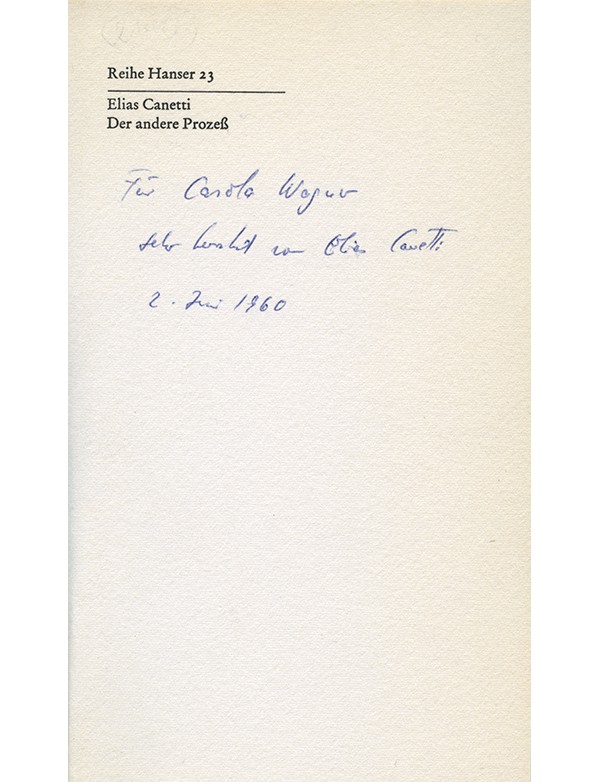 Reihe Hanser 23
Elias Canetti
Der andere Prozeß
Für Carola Wagner
sehr herzlich von Elias Canetti
2. Juni 1960